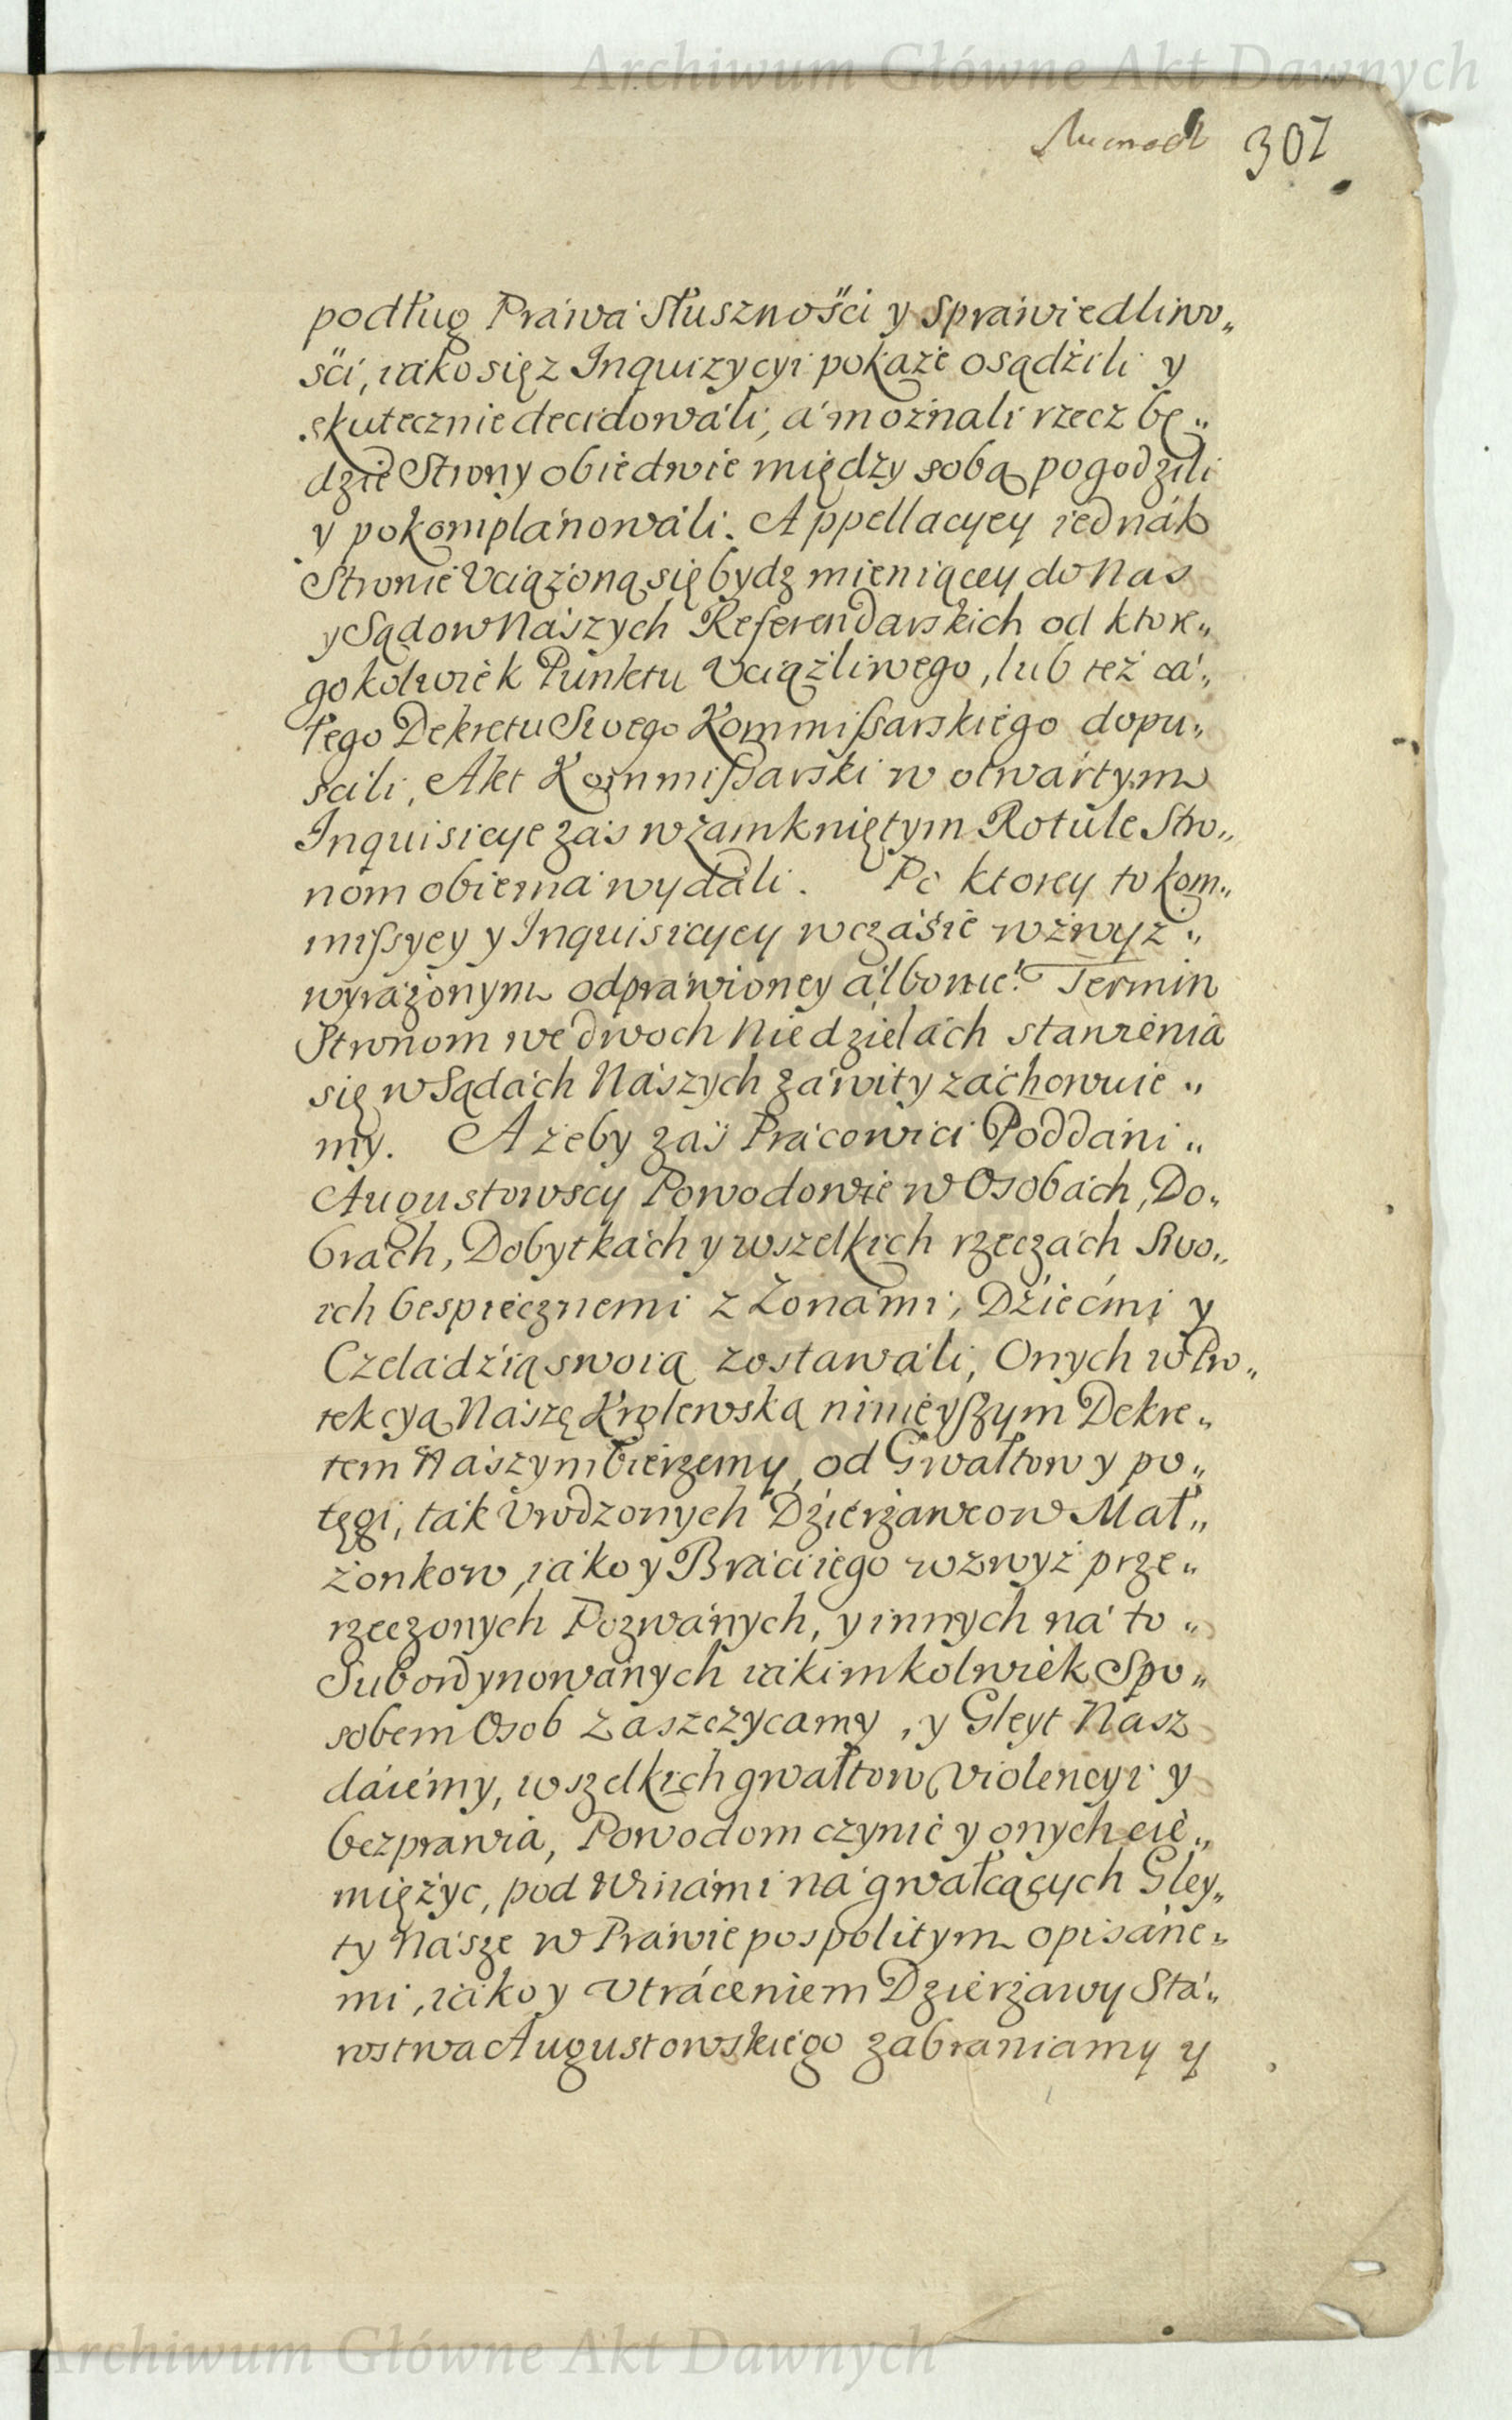 Archiwum Główne Akt Dawnych
307
podług Práwá Słusznośći y Spráwiedliwo„
śći, iáko się z Inquizycyi pokaże osądźili y
skutecznie decidowáli, á możnali rzecz bę„
dzie Strony obiedwie między sobą pogodzili
y pokomplánowáli. Appellacyey iednák
Stronie Vciążoną się bydz mieniącey do Nas
y Sądow Nászych Referendarskich od ktore„
gokolwiek Punktu Vciążliwego, lub też cá„
łego Dekretu Swego Kommissarskiego dopu„
scili, Akt Kommissarski w otwártym
Inquisicye zás w zamkniętym Rotule Stro„
nom obiema wydáli. Po ktorey to kom„
missyey y Inquisicyey w czáśie wzwyż „
wyrażonym odpráwioney álbo nie? Termin
Stronom we dwoch Niedzielách stawienia
się w Sądách Nászych záwity záchowuie „
my. A żeby záś Prácowici Poddáni „
Augustowscy Powodowie w Osobách, Do„
brách, Dobytkách y wszelkich rzeczách Swo„
ich bespiecznemi z Żonámi, Dźiećmi y
Czeladźią swoią zostawáli, Onych w Pro„
tekcyą Nászę Krolewską ninieyszym Dekre„
tem Nászym bierzemy, od Gwałtow y po„
tęgi, ták Vrodzonych Dzierżawcow Mał„
żonkow, iáko y Bráci iego wzwyż prze„
rzeczonych Pozwánych, y innych ná to „
Subordynowánych iákimkolwiek Spo„
sobem Osob zaszczycamy, y Gleyt Nász
dáiemy, wszelkich gwałtow, violencyi y
bezprawia, Powodom czynić y onych cie„
miężyc, pod Winámi ná gwałcących Gley„
ty Násze w Práwie pospolitym opisáne„
mi, iáko y Vtráceniem Dzierżawy Stá„
rostwa Augustowskiego zabraniamy y
Archiwum Główne Akt Dawnych